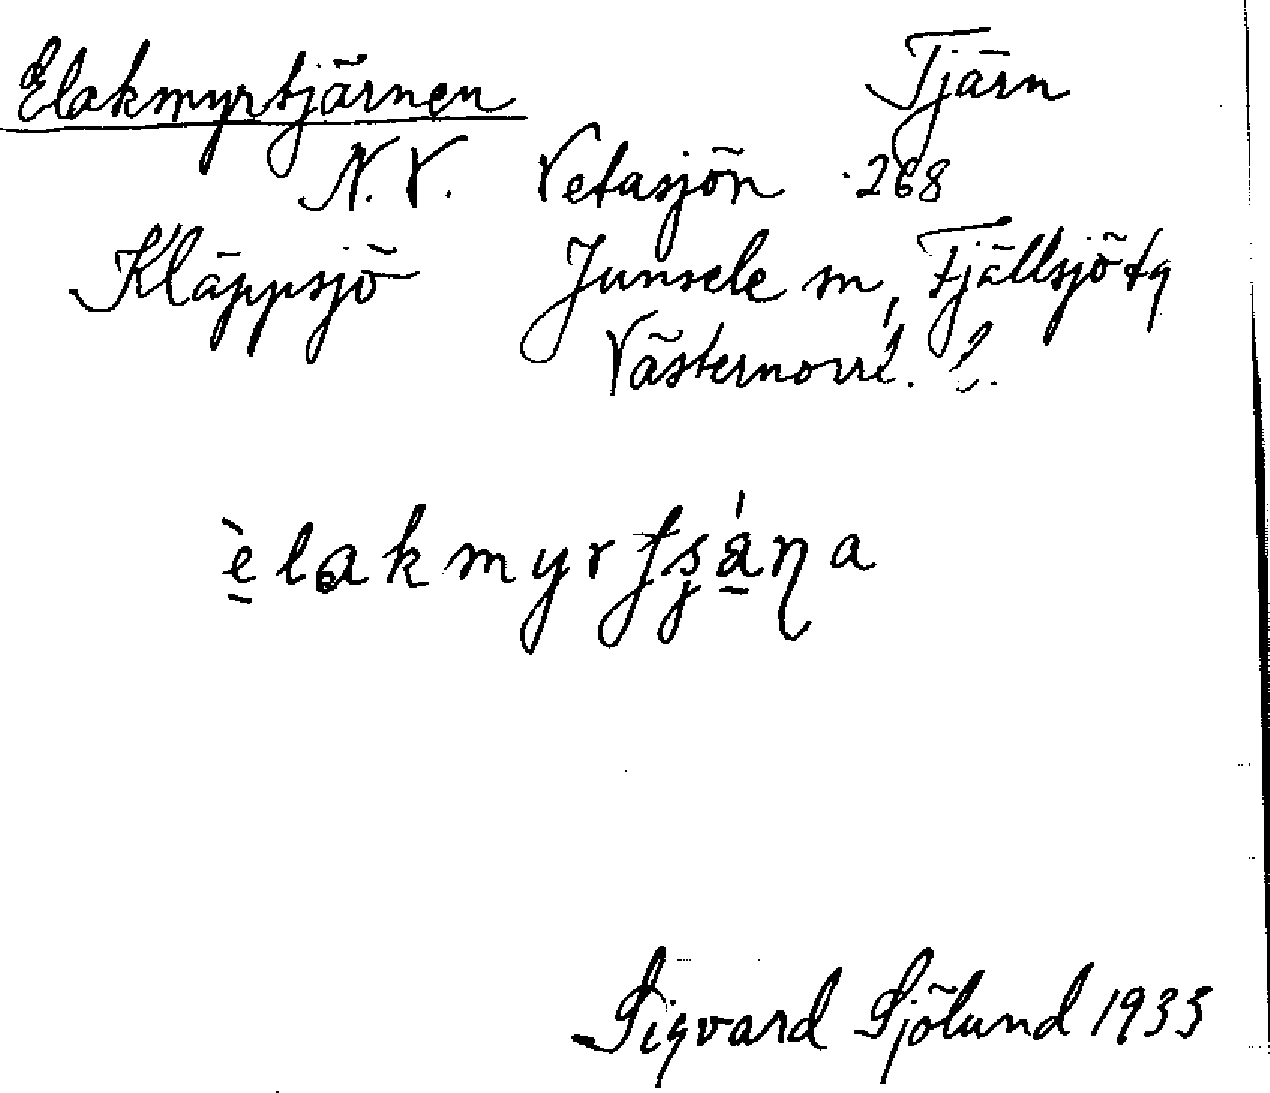 Elakmyrtjärnen Tjärn
N.V. Vetasjön 268
Kläppsjö Junsele sn, Fjällsjö tg
Västernorrl. l.
èlakmyrtʂána
Sigvard Sjölund 1935